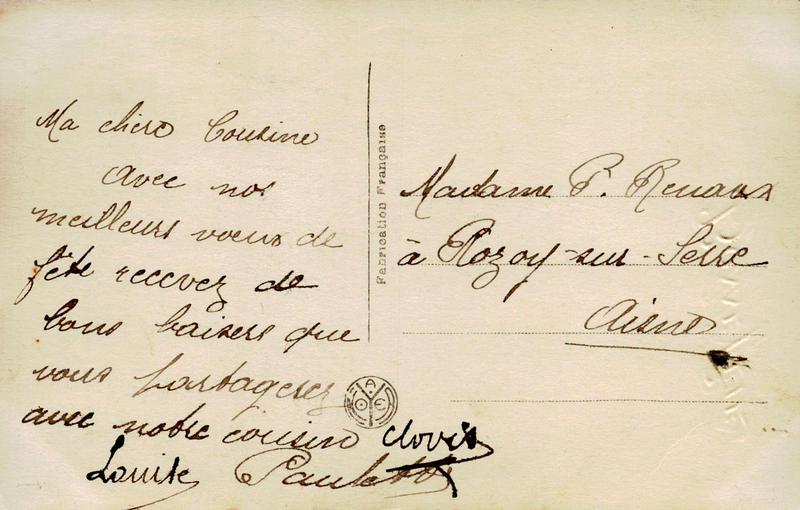 Ma chère Cousine
avec nos
meilleurs voeux de
fête recevez de
bons baisers que
vous partagerez
avec notre cousin Clovis
Louise Paulette
Fabrication Française
Madame P. Renaux
à Rozoy-sur-Serre
Aisne